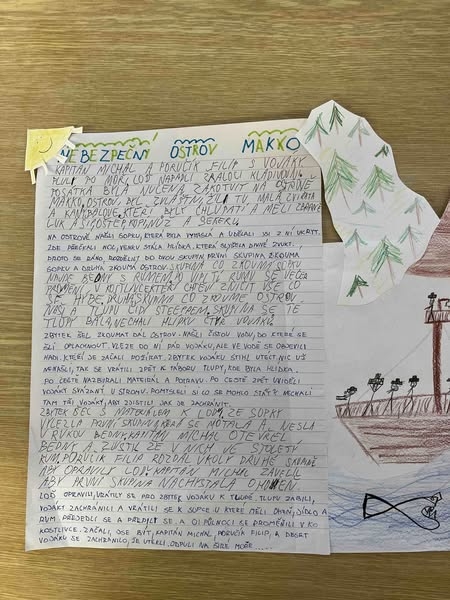 NEBEZPEČNÝ OSTROV MAKKO
KAPITÁN MICHAL A PORUČÍK FILIP S VOJÁKY
PLULI PO MOŘI. LOĎ NAPADLI ŽRALOCI KLADIVOUNI.
POSÁTKA BYLA NUCENA ZAKOTVIT NA OSTROVĚ
MAKKO. OSTROV BYL ZVLÁŠTNÍ. ŽILI TU MALÁ ZVÍŘATA
A KANIBALOVÉ, KTEŘÍ BYLI CHLUPATÍ A MĚLI ZBRANĚ
LUK A ŠÍPY, OŠTĚP, A SEKERU.
NA OSTROVĚ NAŠLI SOPKU, KTERÁ BYLA VYHASLÁ A UDĚLALI SI Z NÍ ÚKRYT.
ZDE PŘEČKALI NOC, VENKU STÁLA HLÍDKA, KTERÁ SLYŠELA DIVNÉ ZVUKY.
PROTO SE RÁNO ROZDĚLILI DO DVOU SKUPIN. PRVNÍ SKUPINA ZKOUMÁ
SOPKU A DRUHÁ ZKOUMÁ OSTROV. SKUPINA CO ZKOUMÁ SOPKU
BEDNY S RUNEMA UVNITŘ
CHTĚLI ZNIČIT VŠE CO
SE HÝBE. DRUHÁ SKUPINA CO ZKOUMÁ OSTROV
NAŠLI A TLUPU LIDÍ SKUPINA SE TÉ
TLUPY BÁLA. NECHALI HLÍDKU ČTYŘ VOJÁKŮ.
ZBYTEK ŠEL ZKOUMAT DÁL OSTROV. NAŠLI ČISTOU VODU, DO KTERÉ SE
ŽLI OPLÁCHNOUT. VLEZE DO NÍ PÁR VOJÁKŮ, ALE VE VODĚ SE OBJEVILI
HADI, KTEŘÍ JE ZAČALI POŽÍRAT. ZBYTEK VOJÁKŮ STIHL UTÉCT. NIC UŽ
NENAŠLI, TAK SE VRÁTILI ZPĚT K TÁBORU TLUPY, KDE BYLA HLÍDKA.
PO CESTĚ NAZBÍRALI MATERIÁL A POTRAVU. PO CESTĚ ZPĚT UVIDĚLI
VOJÁKY SVÁZANÝ U STROMU. POMYSLELI SI CO SE MOHLO STÁT? NECHALI
TAM TŘI VOJÁKY, ABY ZJISTILI, JAK JE ZACHRÁNIT.
ZBYTEK BĚŽÍ S MATERIÁLEM K LODI, ZE SOPKY
VYLEZLA PRVNÍ SKUPINA KTERÁ SE MOTALA A NESLA
V RUKOU BEDNY. KAPITÁN MICHAL OTEVŘEL
BEDNY A ZJISTIL ŽE JE V NICH STOLETÝ
RUM. PORUČÍK FILIP ROZDAL ÚKOLY DRUHÉ SKUPINĚ
ABY OPRAVILY LOĎ. KAPITÁN MICHAL ZAVELIL
ABY PRVNÍ SKUPINA NACHYSTALA OHEŇ.
LOĎ OPRAVILI, VRÁTILY SE PRO ZBYTEK VOJÁKŮ K TLUPĚ. TLUPU ZABILI,
VOJÁKY ZACHRÁNILI A VRÁTILI SE K SOPCE U KTERÉ MĚLI OHEŇ, JÍDLO A
RUM. PŘEJEDLI SE A PŘEPILI SE. A O PŮLNOCI SE PROMĚNILI V KO
KOSTLIVCE. ZAČALI SE BÍT, KAPITÁN MICHAL, PORUČÍK FILIP, A DESET
VOJÁKŮ SE ZACHRÁNILO, JE UTEKLI. ODPLULI NA ŠIRÉ MOŘE ....